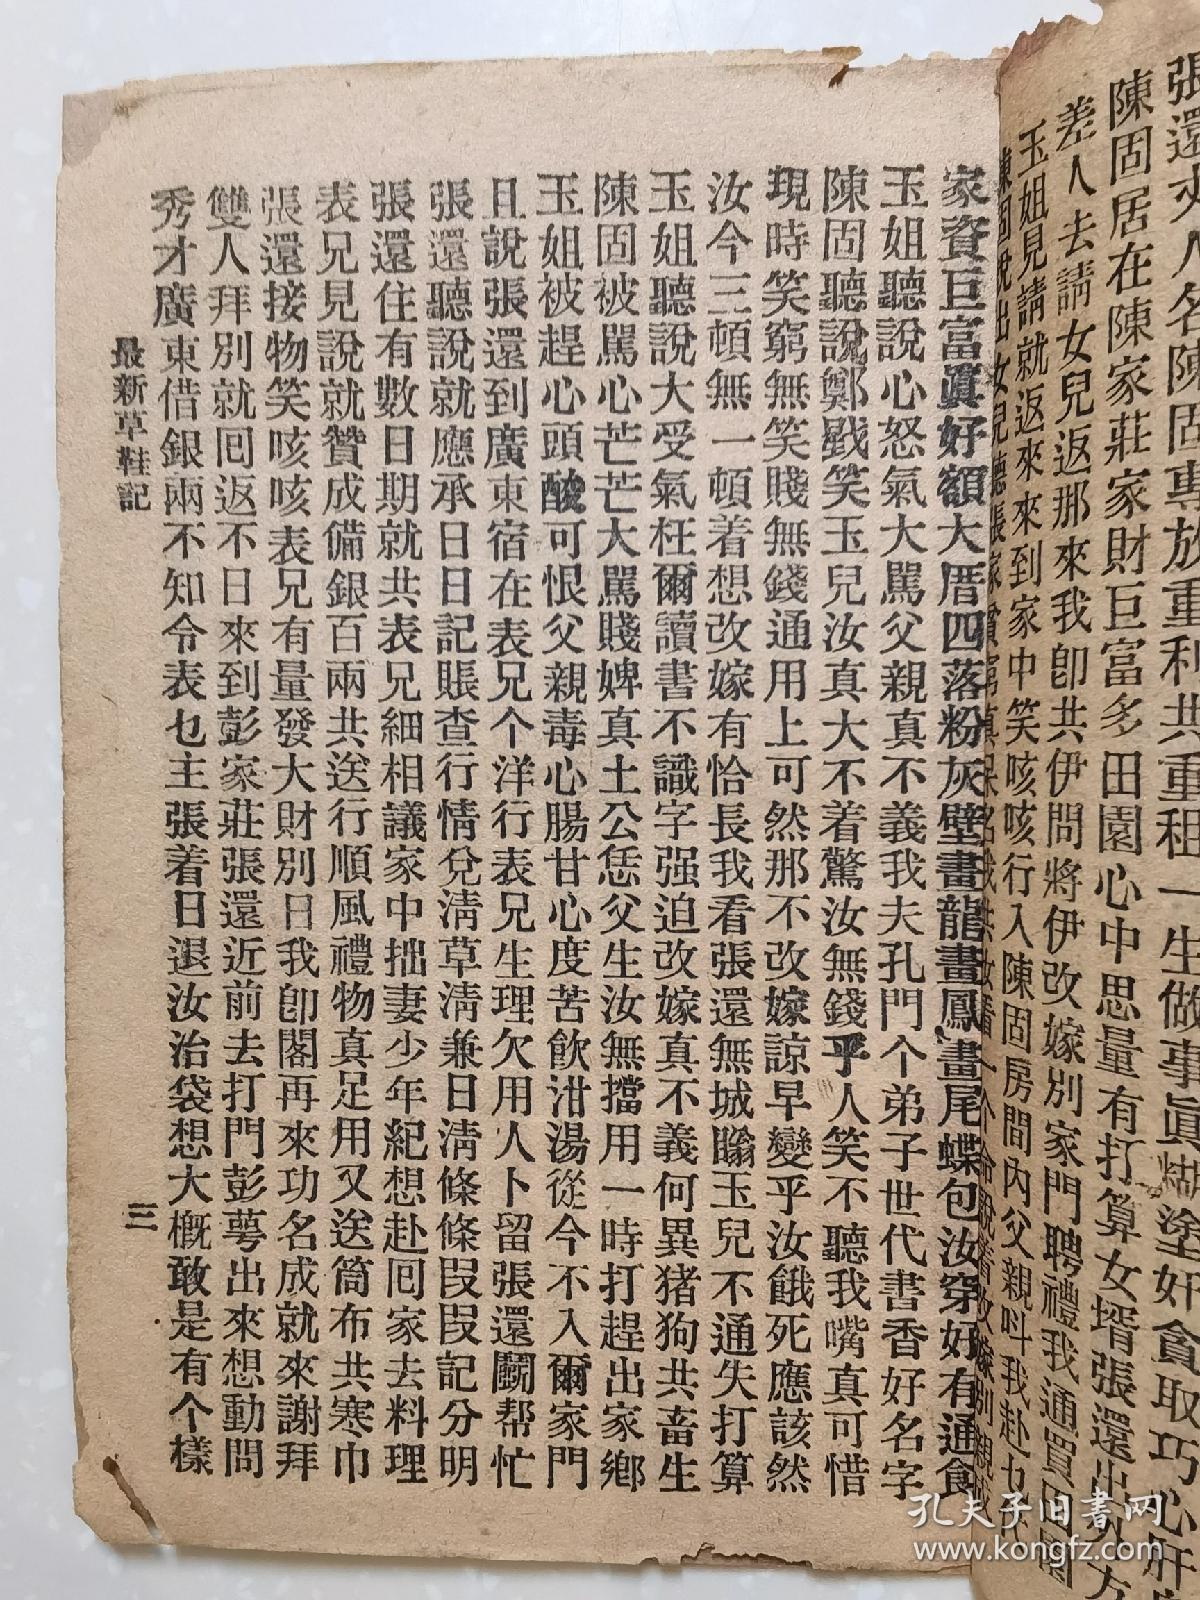 張還求人名陳固專放重利共重租一生做事眞糊塗奸貪取巧心肝
陳固居在陳家莊家財巨富多田園心中思量有打算女壻張還出外方
差人去請女兒返那來我卽共伊問將伊改嫁別家門聘禮我通買田園
玉姐見請就返來來到家中笑咳咳行入陳固房間內父親呌我赴乜
陳固說出女兒聽張家貧窮真呆名我共汝看一个命說着改嫁別親成
家資巨富眞好額大厝四落粉灰壁畫龍畫鳳畫尾蝶包汝穿好有通食
玉姐聽說心怒氣大罵父親真不義我夫孔門个弟子世代書香好名字
陳固聽說鄭戥笑玉兒汝真大不着驚汝無錢乎人笑不聽我嘴真可惜
現時笑窮無笑賤無錢通用上可然那不改嫁諒早變乎汝餓死應該然
汝今三頓無一頓着想改嫁有恰長我看張還無城𥊙玉兒不通失打算
玉姐聽說大受氣枉爾讀書不識字强迫改嫁真不義何異猪狗共畜生
陳固被罵心芒芒大罵賤婢真土公恁父生汝無擋用一時打趕出家鄉
玉姐被趕心頭酸可恨父親毒心腸甘心度苦飲泔湯從今不入爾家門
且說張還到廣東宿在表兄个洋行表兄生理欠用人卜留張還鬭帮忙
張還聽說就應承日日記賬查行情兌淸草淸兼日淸條條叚叚記分明
張還住有數日期就共表兄細相議家中拙妻少年紀想赴囘家去料理
表兄見說就贊成備銀百兩共送行順風禮物真足用又送筒布共寒巾
張還接物笑咳咳表兄有量發大財別日我卽閣再來功名成就來謝拜
雙人拜別就囘返不日來到彭家莊張還近前去打門彭萼出來想動問
秀才廣東借銀兩不知令表乜主張着日退汝治袋想大槪敢是有个樣
最新草鞋記
三
孔夫子旧书网
www.kongfz.com